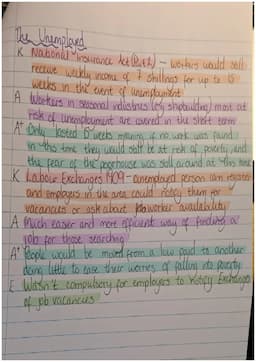 The Unemployed
K National Insurance Act (Part 2) - workers would still
receive weekly income of 7 shillings for up to 15
weeks in the event of unemployment
A Workers in seasonal industries (eg shipbuilding) most at
risk of unemployment are covered in the short term
A+ Only lasted 15 weeks meaning if no work was found
in this time they would still be at risk of poverty and
the fear of the poorhouse was still around at this time
K Labour Exchanges 1909 - unemployed person can register
and employers in the area could notify them for
vacancies or ask about worker availability
A Much easier and more efficient way of finding a
job for those searching
A+ People would be moved from a low paid to another
doing little to ease their worries of falling into poverty
E Wasn't compulsory for employers to notify Exchanges
of job vacancies